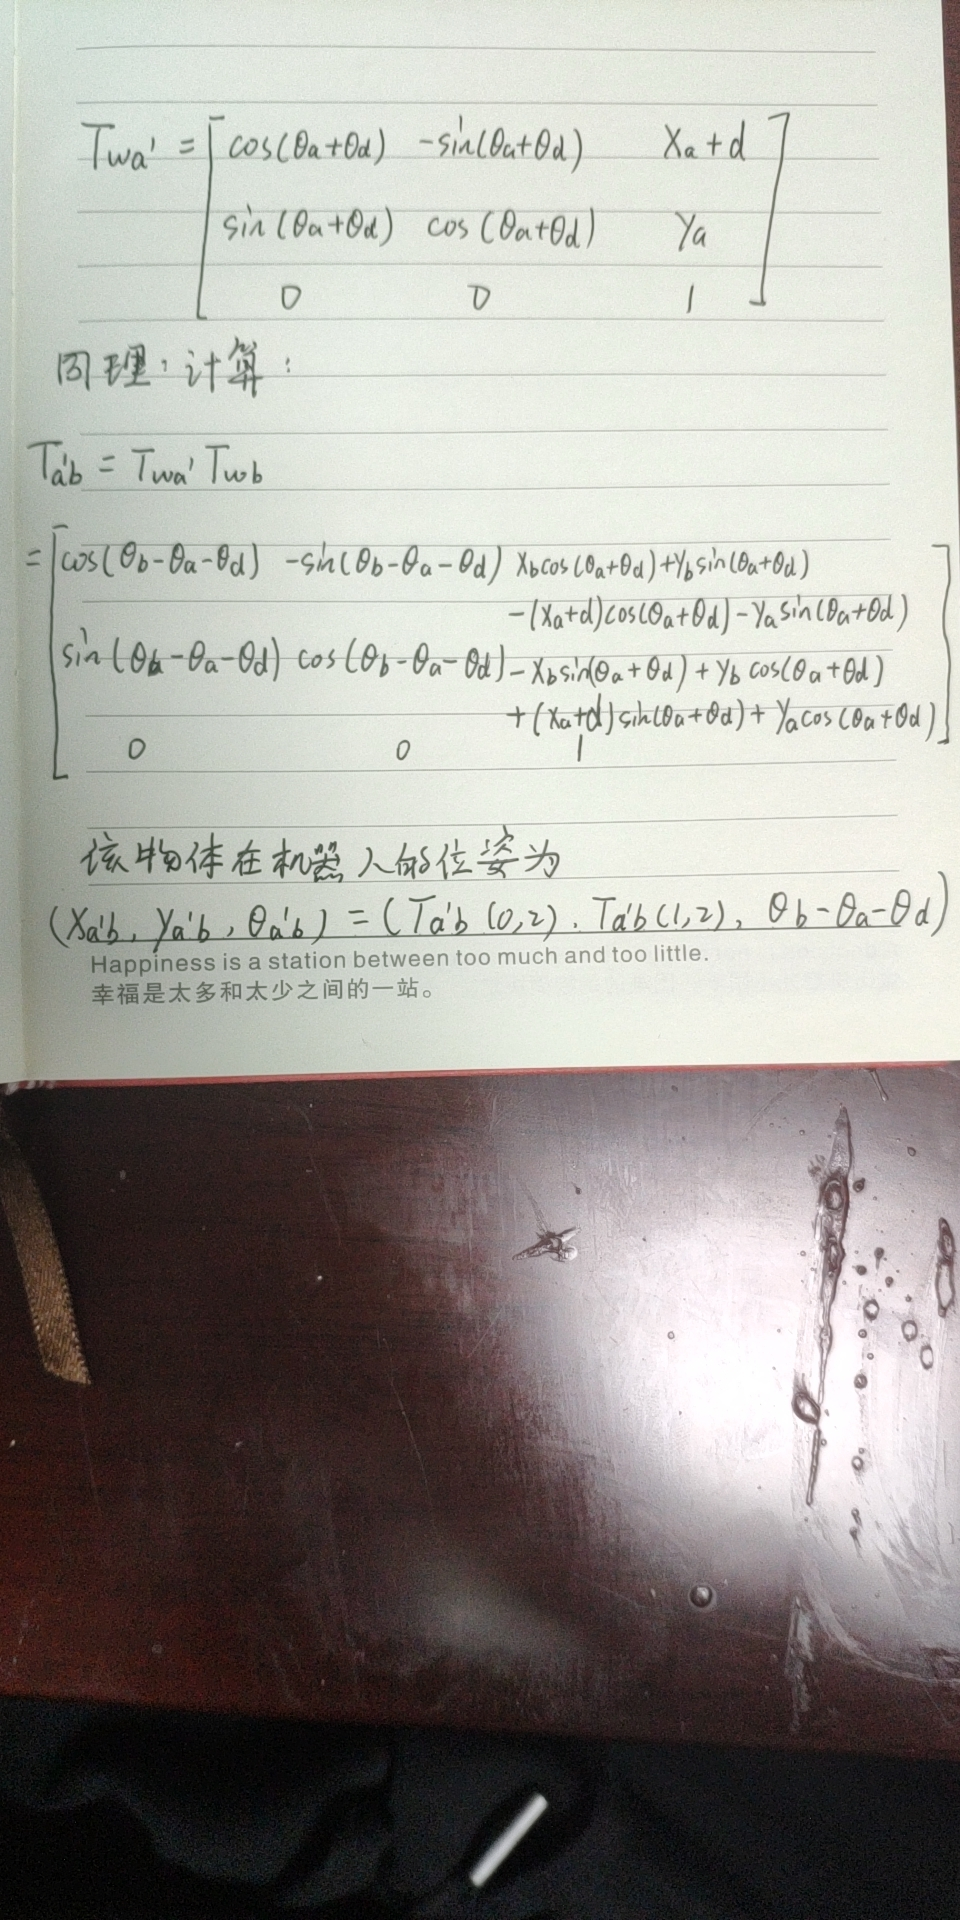 Twa' = [cos(θa+θd) -sin(θa+θd) Xa+d
sin(θa+θd) cos(θa+θd) Ya
0 0 1]
同理,计算:
Ta'b = Twa' Twb
= [cos(θb-θa-θd) -sin(θb-θa-θd) Xbcos(θa+θd)+Ybsin(θa+θd)
-(Xa+d)cos(θa+θd)-Yasin(θa+θd)
sin(θb-θa-θd) cos(θb-θa-θd) -Xbsin(θa+θd)+Ybcos(θa+θd)
+(Xa+d)sin(θa+θd)+Yacos(θa+θd)
0 0 1]
该物体在机器人的位姿为
(Xa'b, Ya'b, θa'b) = (Ta'b(0,2), Ta'b(1,2), θb-θa-θd)
Happiness is a station between too much and too little.
幸福是太多和太少之间的一站。